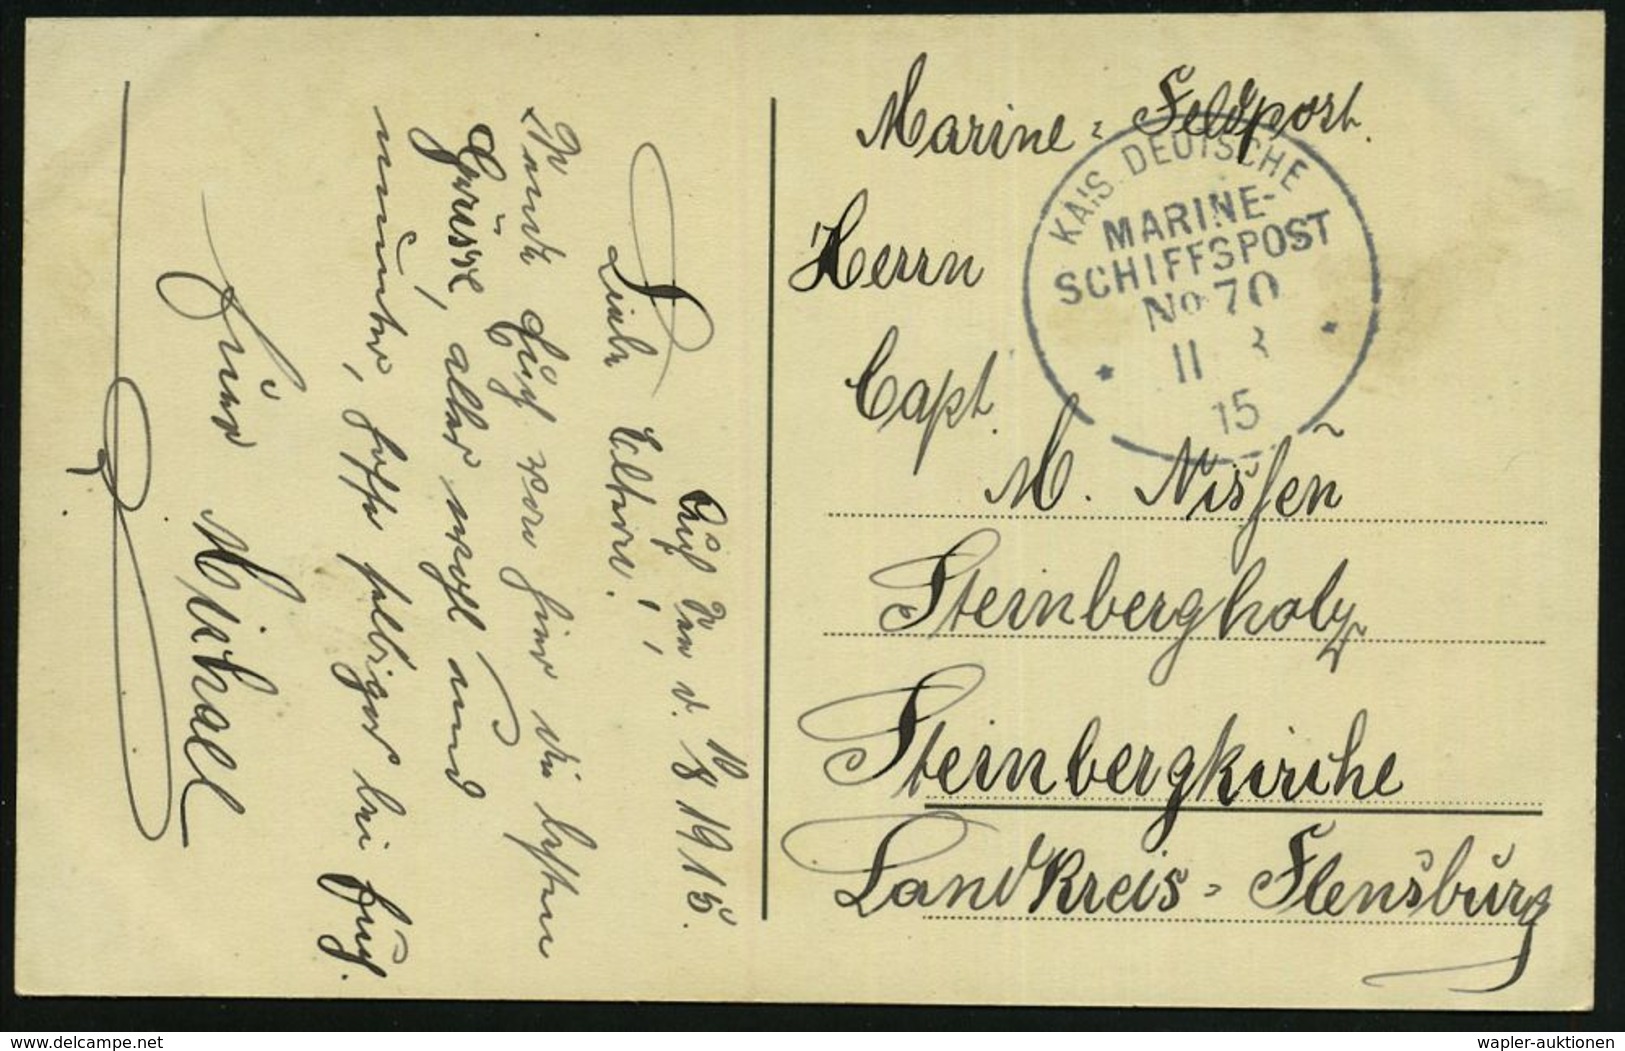 Auf See, d. 10/8 1915.
Liebe Eltern!
Sende Euch von hier die besten
Grüsse, alles wohl und
munter, hoffe selbiges bei Euch.
Euer
Michael
Marine-Feldpost.
Herrn
Capt.
M. Nissen
Steinbergholz
Steinbergkirche
Landkreis-Flensburg
KAIS. DEUTSCHE
MARINE-
SCHIFFSPOST
No 70
11 8
15
delcampe.net
wapler-auktionen